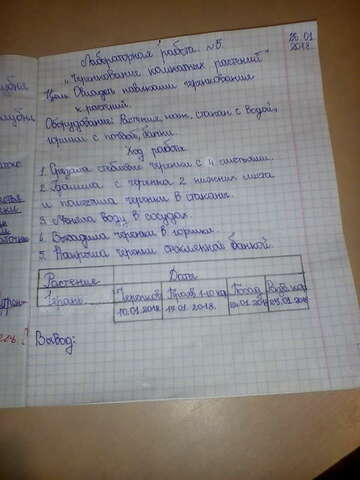 Лабораторная работа №5.
25.01
2018.
"Черенкование комнатных растений"
Цель: Овладел навыками черенкования
к растений.
Оборудование: Растения, нож, стакан с водой,
горшки с почвой, банки
Ход работы
1. Срезала стеблевые черенки с 4 листьями.
2. Удалила с черенка 2 нижних листа
и поместила черенки в стаканы.
3. Меняла воду в сосудах
4. Высадила черенки в горшки.
5. Накрыла черенки стеклянной банкой.
Растение Дата
Герань Черенков
10.01.2018 17.01.2018.
Вывод: